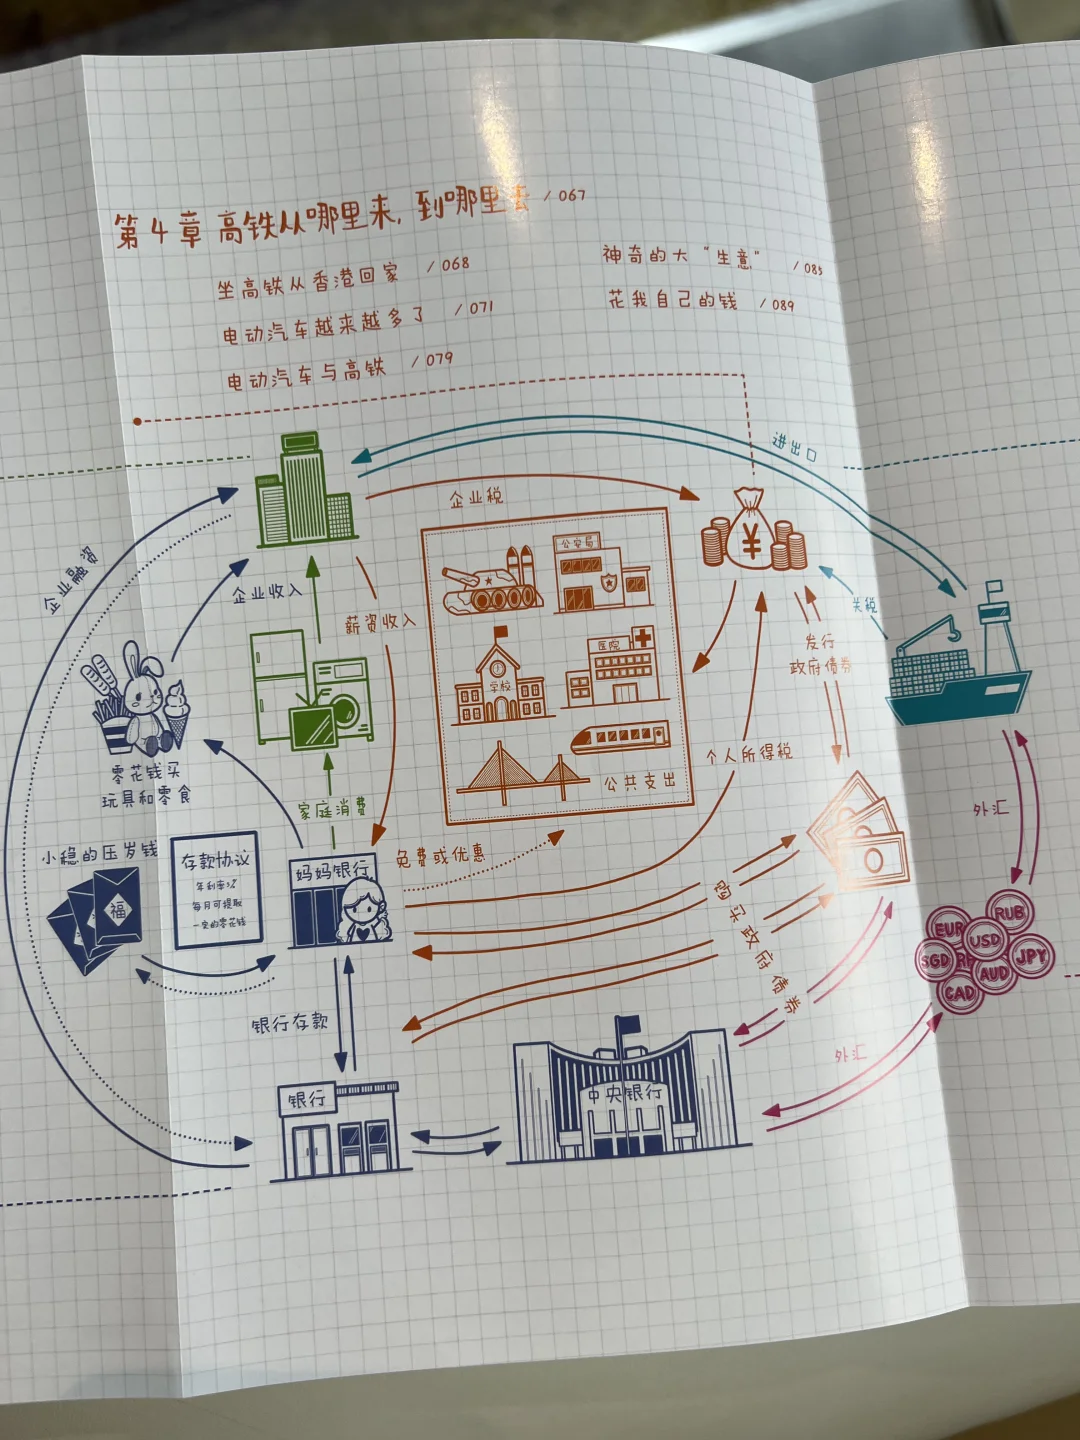 第4章 高铁从哪里来，到哪里去 / 067
坐高铁从香港回家 / 068
电动汽车越来越多了 / 071
电动汽车与高铁 / 079
神奇的大“生意” / 085
花我自己的钱 / 089
进出口
企业税
企业融资
企业收入
薪资收入
公安局
学校
医院
公共支出
¥
关税
发行
政府债券
个人所得税
零花钱买
玩具和零食
家庭消费
免费或优惠
小稳的压岁钱
福
存款协议
年利率3%
每月可提取
一定的零花钱
妈妈银行
购买政府债券
外汇
RUB
EUR
USD
SGD
JPY
AUD
CAD
银行存款
外汇
银行
中央银行